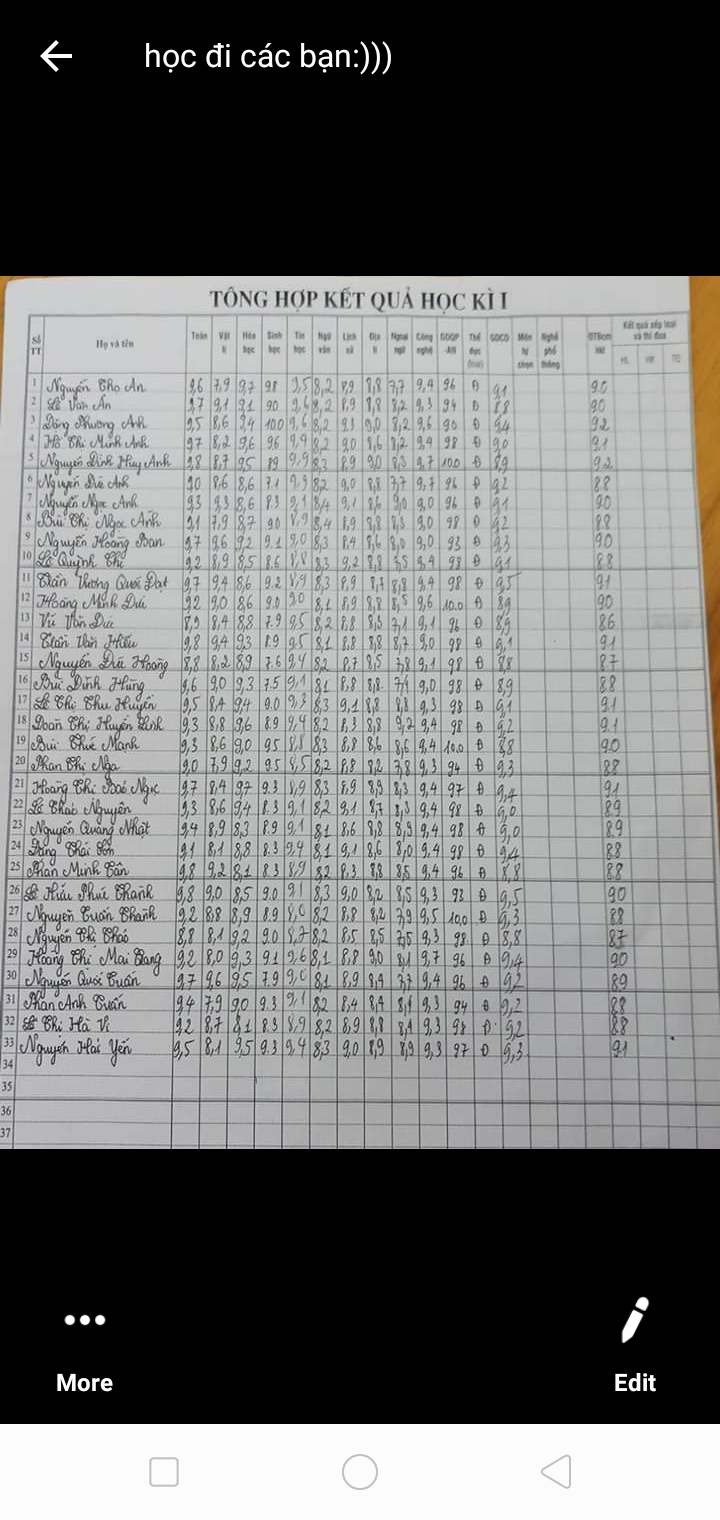 học đi các bạn:)))
TỔNG HỢP KẾT QUẢ HỌC KÌ I
Số TT Họ và tên Toán Vật lí Hóa học Sinh học Tin học Ngữ văn Lịch sử Địa lí Ngoại ngữ Công nghệ GDQP -AN Thể dục GDCD Môn tự chọn Nghề phổ thông ĐTBcm Kết quả xếp loại và thi đua
HL HK TĐ
1 Nguyễn Thọ An 9,6 7,9 9,7 9.8 9,5 8,2 8,9 8,8 7,7 9,4 9.6 Đ 9,1 9.0
2 Lê Văn Ân 9,7 9,1 9,1 9.0 9,6 8,2 8,9 8,8 8,2 9,3 9.4 Đ 8,8 9.0
3 Phương Anh 9,5 8,6 9,4 10.0 9,6 8,2 9.3 9,0 8,2 9,6 9.0 Đ 9,4 9.2
4 Hồ Thị Minh Anh 9,7 8,2 9,6 9.6 9,4 8,2 9,0 8,6 8,2 9,4 9.8 Đ 9,0 9.1
5 Nguyễn Đình Huy Anh 9,8 8,7 9,5 8.9 9,9 8,3 8,9 9,0 8,3 9,7 10.0 Đ 8,9 9.2
6 Nguyễn Anh 9,0 8,6 8,6 7.1 9,9 8,2 9,0 8,8 7,7 9,7 9.6 Đ 9,2 8.8
7 Nguyễn Ngọc Anh 9,3 9,3 8,6 8.3 9,1 8,4 9,1 8,6 9,0 9,0 9.6 Đ 9,1 9.0
8 Bùi Thị Ngọc Anh 9,1 7,9 8,7 9.0 8,9 8,4 8,9 8,8 8,3 9,0 9.8 Đ 9,2 8.8
9 Nguyễn Hoàng 9,7 9,6 9,2 9.1 9,0 8,3 8,4 8,6 8,0 9,0 9.3 Đ 9,3 9.0
10 Lê Quỳnh Chi 9,2 8,9 8,5 8.6 8,8 8,3 9,2 8,8 7,5 9,4 9.8 Đ 9,1 8.8
11 Trần Vương Quới Đạt 9,7 9,4 8,6 9.2 8,9 8,3 8,9 8,7 8,8 9,4 9.8 Đ 9,5 9.1
12 Hoàng Minh Đức 9,2 9,0 8,6 9.0 9,0 8,1 8,9 8,8 8,5 9,6 10.0 Đ 8,9 9.0
13 Vũ Văn Đức 8,9 8,4 8,8 7.9 9,5 8,2 8,8 8,3 7,1 9,1 9.6 Đ 8,9 8.6
14 Trần Văn Hiếu 9,8 9,4 9,3 8.9 9,5 8,1 8,8 8,8 8,7 9,0 9.8 Đ 9,1 9.1
15 Nguyễn Đức Hoàng 8,8 8,2 8,9 7.6 9,4 8,2 8,7 8,5 7,8 9,1 9.8 Đ 8,8 8.7
16 Bùi Đình Hùng 9,6 9,0 9,3 7.5 9,1 8,1 8,8 8,8 7,4 9,0 9.8 Đ 8,9 8.8
17 Lê Thị Thu Huyền 9,5 8,4 9,4 9.0 9,3 8,3 9,1 8,8 8,8 9,3 9.8 Đ 9,1 9.1
18 Đoàn Thị Huyền Linh 9,3 8,8 9,6 8.9 9,4 8,2 8,3 8,8 9,2 9,4 9.8 Đ 9,2 9.1
19 Bùi Thức Mạnh 9,3 8,6 9,0 9.5 8,8 8,3 8,8 8,6 8,6 9,4 10.0 Đ 8,8 9.0
20 Phan Thị Nga 9,0 7,9 9,2 9.5 8,5 8,2 8,8 8,2 7,8 9,3 9.4 Đ 9,3 8.8
21 Hoàng Thị Bảo Ngọc 9,7 8,4 9,7 9.3 8,9 8,3 8,9 8,9 8,3 9,4 9.7 Đ 9,4 9.1
22 Lê Thảo Nguyên 9,3 8,6 9,4 8.3 9,1 8,2 9,1 8,7 8,3 9,4 9.8 Đ 9,0 8.9
23 Nguyễn Quang Nhật 9,4 8,9 8,3 8.9 9,1 8,1 8,6 8,8 8,9 9,4 9.8 Đ 9,0 8.9
24 Thái Sơn 9,1 8,1 8,8 8.3 9,4 8,1 9,1 8,6 8,0 9,4 9.8 Đ 9,4 8.8
25 Phan Minh Tân 9,8 9,2 8,1 8.3 8,9 8,2 8,3 8,8 8,5 9,4 9.6 Đ 8,8 8.8
26 Lê Hữu Phúc Thành 9,8 9,0 8,5 9.0 9,1 8,3 9,0 8,2 8,5 9,3 9.3 Đ 9,5 9.0
27 Nguyễn Tuấn Thanh 9,2 8,8 8,9 8.9 8,0 8,2 8,8 8,2 7,9 9,5 10.0 Đ 9,3 8.8
28 Nguyễn Thị Thảo 8,8 8,1 9,2 9.0 8,7 8,2 8,5 8,5 7,5 9,3 9.8 Đ 8,8 8.7
29 Hoàng Thị Mai Trang 9,2 8,0 9,3 9.1 9,6 8,1 8,8 9,0 8,1 9,7 9.6 Đ 9,4 9.0
30 Nguyễn Quới Tuấn 9,7 9,6 9,5 7.9 9,0 8,1 8,9 8,4 7,7 9,4 9.6 Đ 9,2 8.9
31 Phan Anh Tuấn 9,4 7,9 9,0 9.3 9,1 8,2 8,4 8,4 8,1 9,3 9.4 Đ 9,2 8.8
32 Lê Thị Hà Vi 9,2 8,7 8,1 8.3 8,9 8,2 8,9 8,8 8,4 9,3 9.8 Đ 9,2 8.8
33 Nguyễn Hải Yến 9,5 8,1 9,5 9.3 9,4 8,3 9,0 8,9 8,9 9,3 9.7 Đ 9,3 9.1
34
35
36
37
More Edit